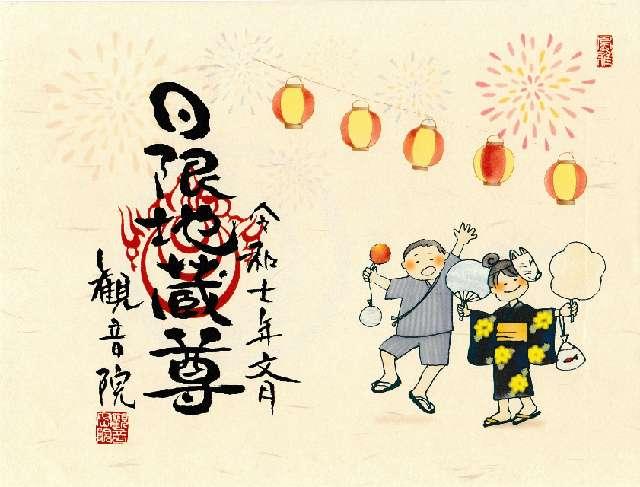 令和七年文月
日限地蔵尊
観音院